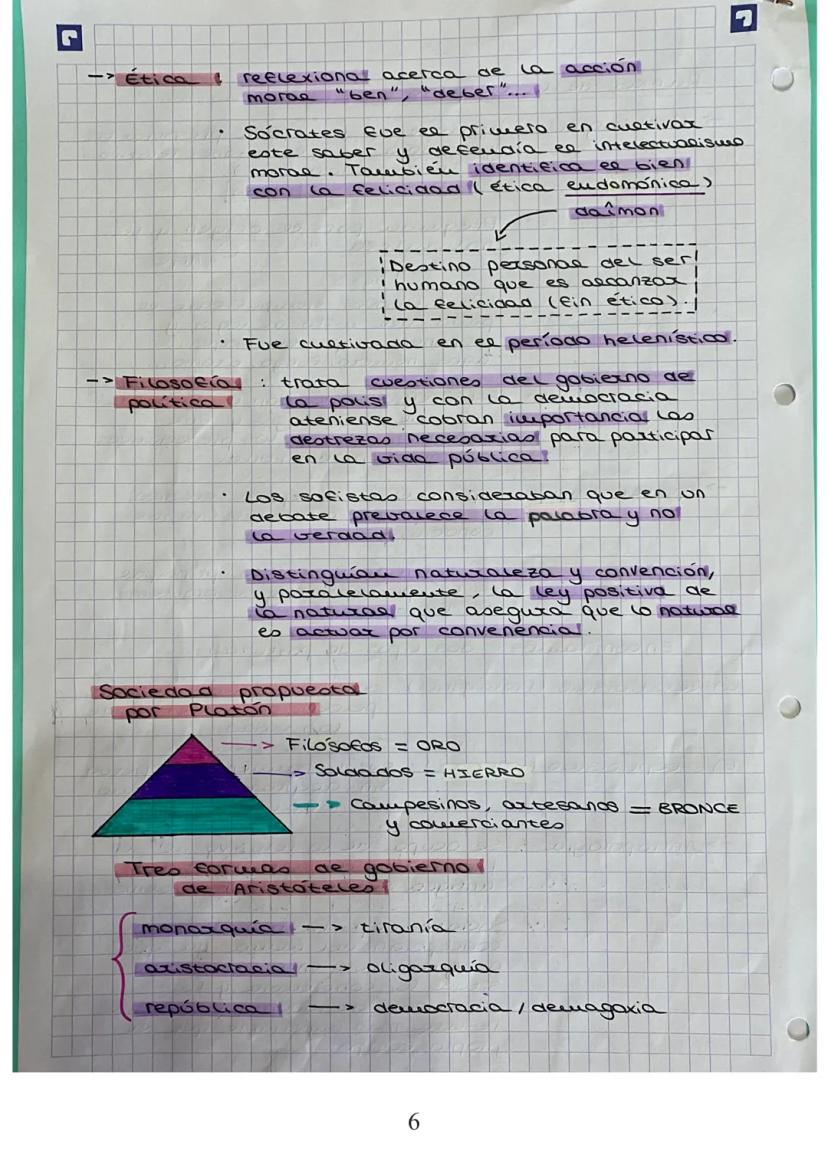 -> Ética : reflexiona acerca de la acción
moral "ben", "deber"...
· Sócrates fue el primero en cultivar
este saber y defendía el intelectualismo
moral. También identifica el bien
con la felicidad (ética eudomónica)
daîmon
Destino personal del ser
humano que es alcanzar
la felicidad (fin ético).
· Fue cultivada en el período helenístico.
-> Filosofía : trata cuestiones del gobierno de
política la polis y con la democracia
ateniense cobran importancia las
destrezas necesarias para participar
en la vida pública.
· Los sofistas consideraban que en un
debate prevalece la palabra y no
la verdad.
· Distinguían naturaleza y convención,
y paralelamente, la ley positiva de
la natural que asegura que lo natural
es actuar por convenencia.
Sociedad propuesta
por Platón
-> Filósofos = ORO
-> Soldados = HIERRO
-> Campesinos, artesanos = BRONCE
y comerciantes
Tres formas de gobierno
de Aristóteles
monarquía -> tiranía
aristocracia -> oligarquía
república -> democracia / demagoxia
6